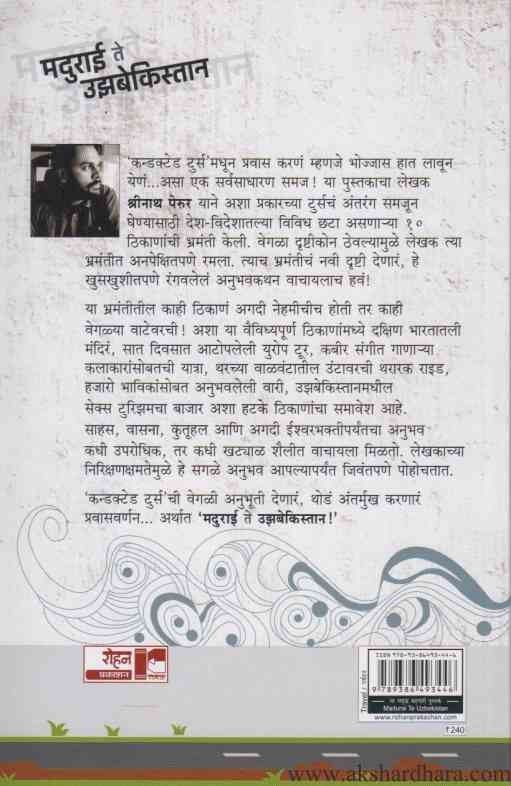 मदुराई ते
उझबेकिस्तान
'कन्डक्टेड टुर्स'मधून प्रवास करणं म्हणजे भोज्जास हात लावून
येणं...असा एक सर्वसाधारण समज! या पुस्तकाचा लेखक
श्रीनाथ पेरुर याने अशा प्रकारच्या टुर्सचं अंतरंग समजून
घेण्यासाठी देश-विदेशातल्या विविध छटा असणाऱ्या १०
ठिकाणांची भ्रमंती केली. वेगळा दृष्टीकोन ठेवल्यामुळे लेखक त्या
भ्रमंतीत अनपेक्षितपणे रमला. त्याच भ्रमंतीचं नवी दृष्टी देणारं, हे
खुसखुशीतपणे रंगवलेलं अनुभवकथन वाचायलाच हवं!
या भ्रमंतीतील काही ठिकाणं अगदी नेहमीचीच होती तर काही
वेगळ्या वाटेवरची! अशा या वैविध्यपूर्ण ठिकाणांमध्ये दक्षिण भारतातली
मंदिरं, सात दिवसात आटोपलेली युरोप टूर, कबीर संगीत गाणाऱ्या
कलाकारांसोबतची यात्रा, थरच्या वाळवंटातील उंटावरची थरारक राइड,
हजारो भाविकांसोबत अनुभवलेली वारी, उझबेकिस्तानमधील
सेक्स टुरिझमचा बाजार अशा हटके ठिकाणांचा समावेश आहे.
साहस, वासना, कुतूहल आणि अगदी ईश्वरभक्तीपर्यंतचा अनुभव
कधी उपरोधिक, तर कधी खट्याळ शैलीत वाचायला मिळतो. लेखकाच्या
निरिक्षणक्षमतेमुळे हे सगळे अनुभव आपल्यापर्यंत जिवंतपणे पोहोचतात.
'कन्डक्टेड टुर्स'ची वेगळी अनुभूती देणारं, थोडं अंतर्मुख करणारं
प्रवासवर्णन... अर्थात 'मदुराई ते उझबेकिस्तान!'
रोहन
प्रकाशन
ISBN 978-93-86493-44-6
9 789386 493446
Madurai Te Uzbekistan
www.rohanprakashan.com
₹240
www.akshardhara.com